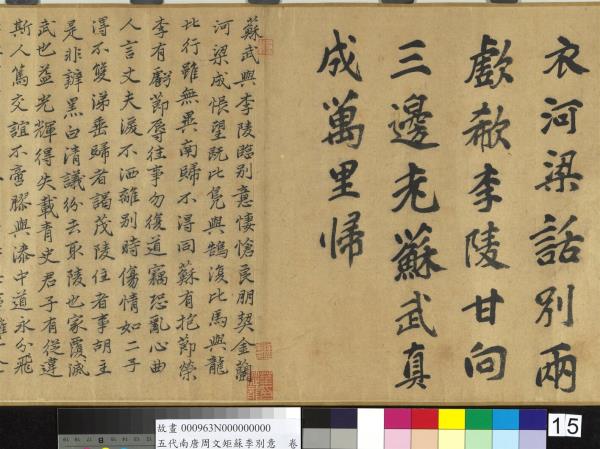 衣河梁話別兩
歔欷李陵甘向
三邊老蘇武真
成萬里歸
蘇武與李陵臨別意悽愴良朋契金蘭
河梁成悵望既比鳧與鵠復比馬與龍
此行雖無異南歸不得同蘇有抱節榮
李有虧節辱往事勿復道竊恐亂心曲
人言丈夫淚不洒離別時傷情如二子
得不雙涕垂歸者謁茂陵住者事胡主
是非辯黑白清議紛去取陵也家覆滅
武也益光輝得失載青史君子有從違
斯人篤交誼不啻膠與漆中道永分飛
故畫 000963N000000000
五代南唐周文矩蘇李別意 卷
15